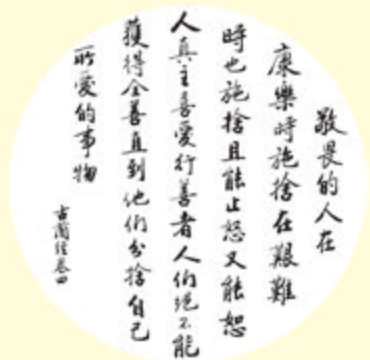 敬畏的人在
康樂時施捨在艱難
時也施捨且能止怒又能恕
人真主喜愛行善者人們絕不能
獲得全善直到他們分捨自己
所愛的事物
古蘭經卷四